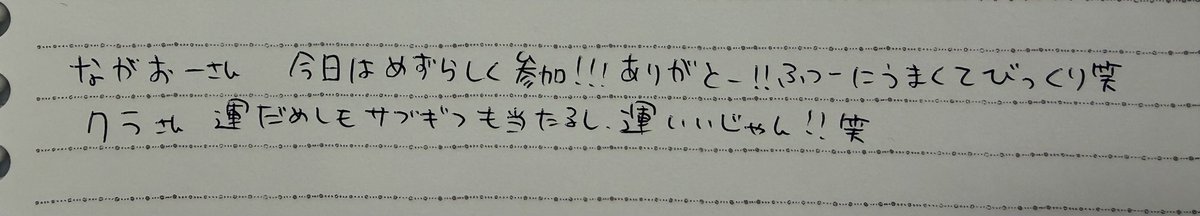 ながおーさん 今日はめずらしく参加!!!ありがとー!!ふつーにうまくてびっくり笑
クラさん 運だめしもサブギフも当たるし、運いいじゃん!!笑